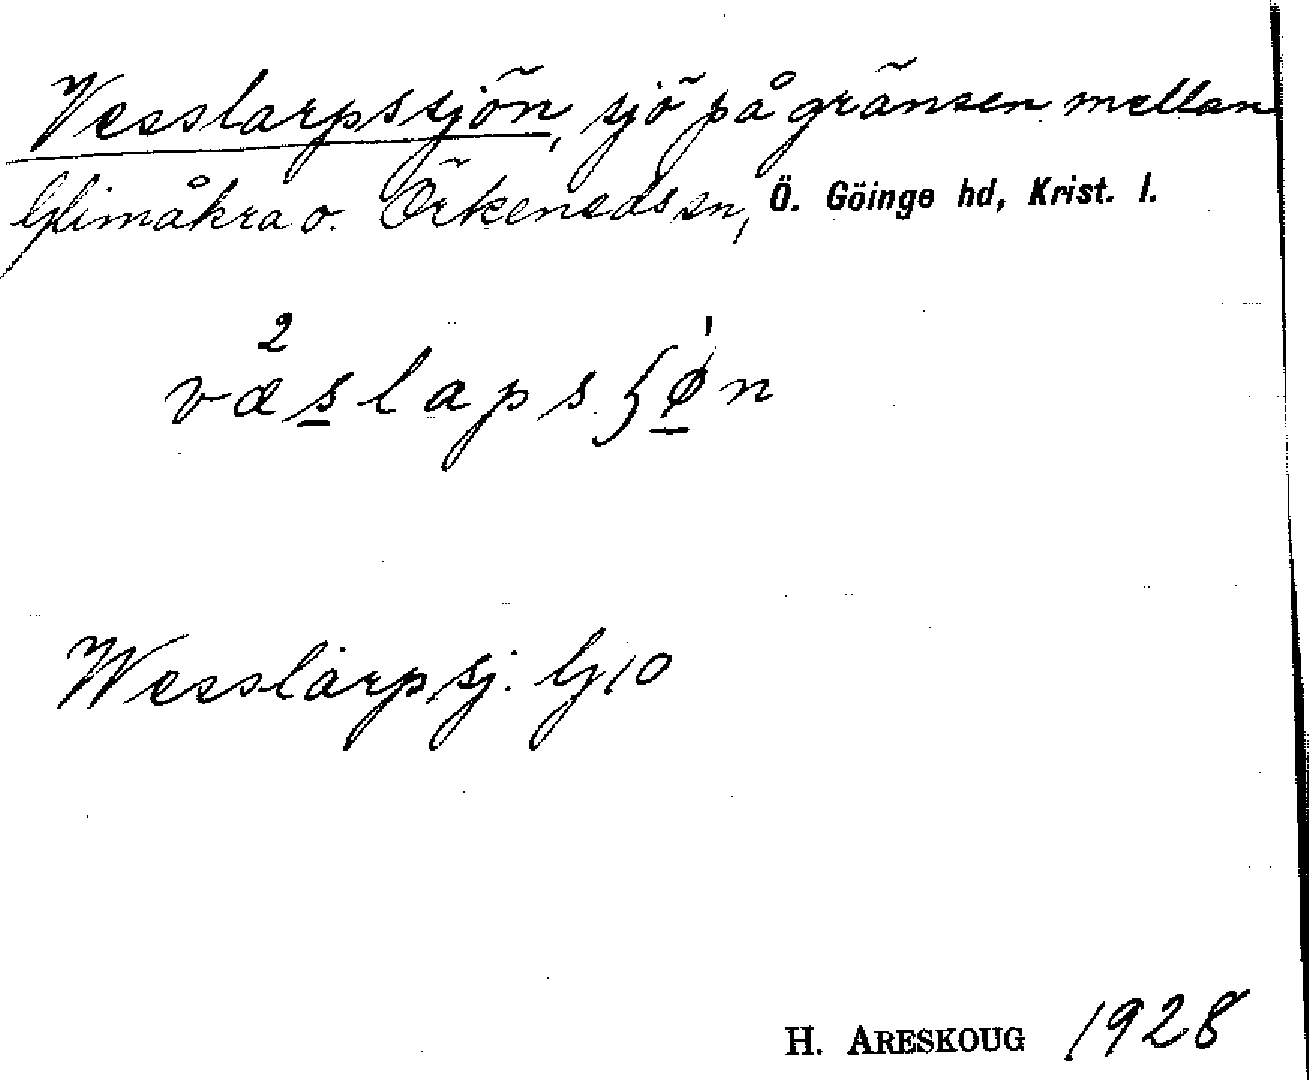 Vesslarpssjön, sjö på gränsen mellan
Glimåkra o. Örkeneds sn, Ö. Göinge hd, Krist. l.
2 ˈ
væslapsʃøn
Wesslarpsj. G10
H. ARESKOUG 1928